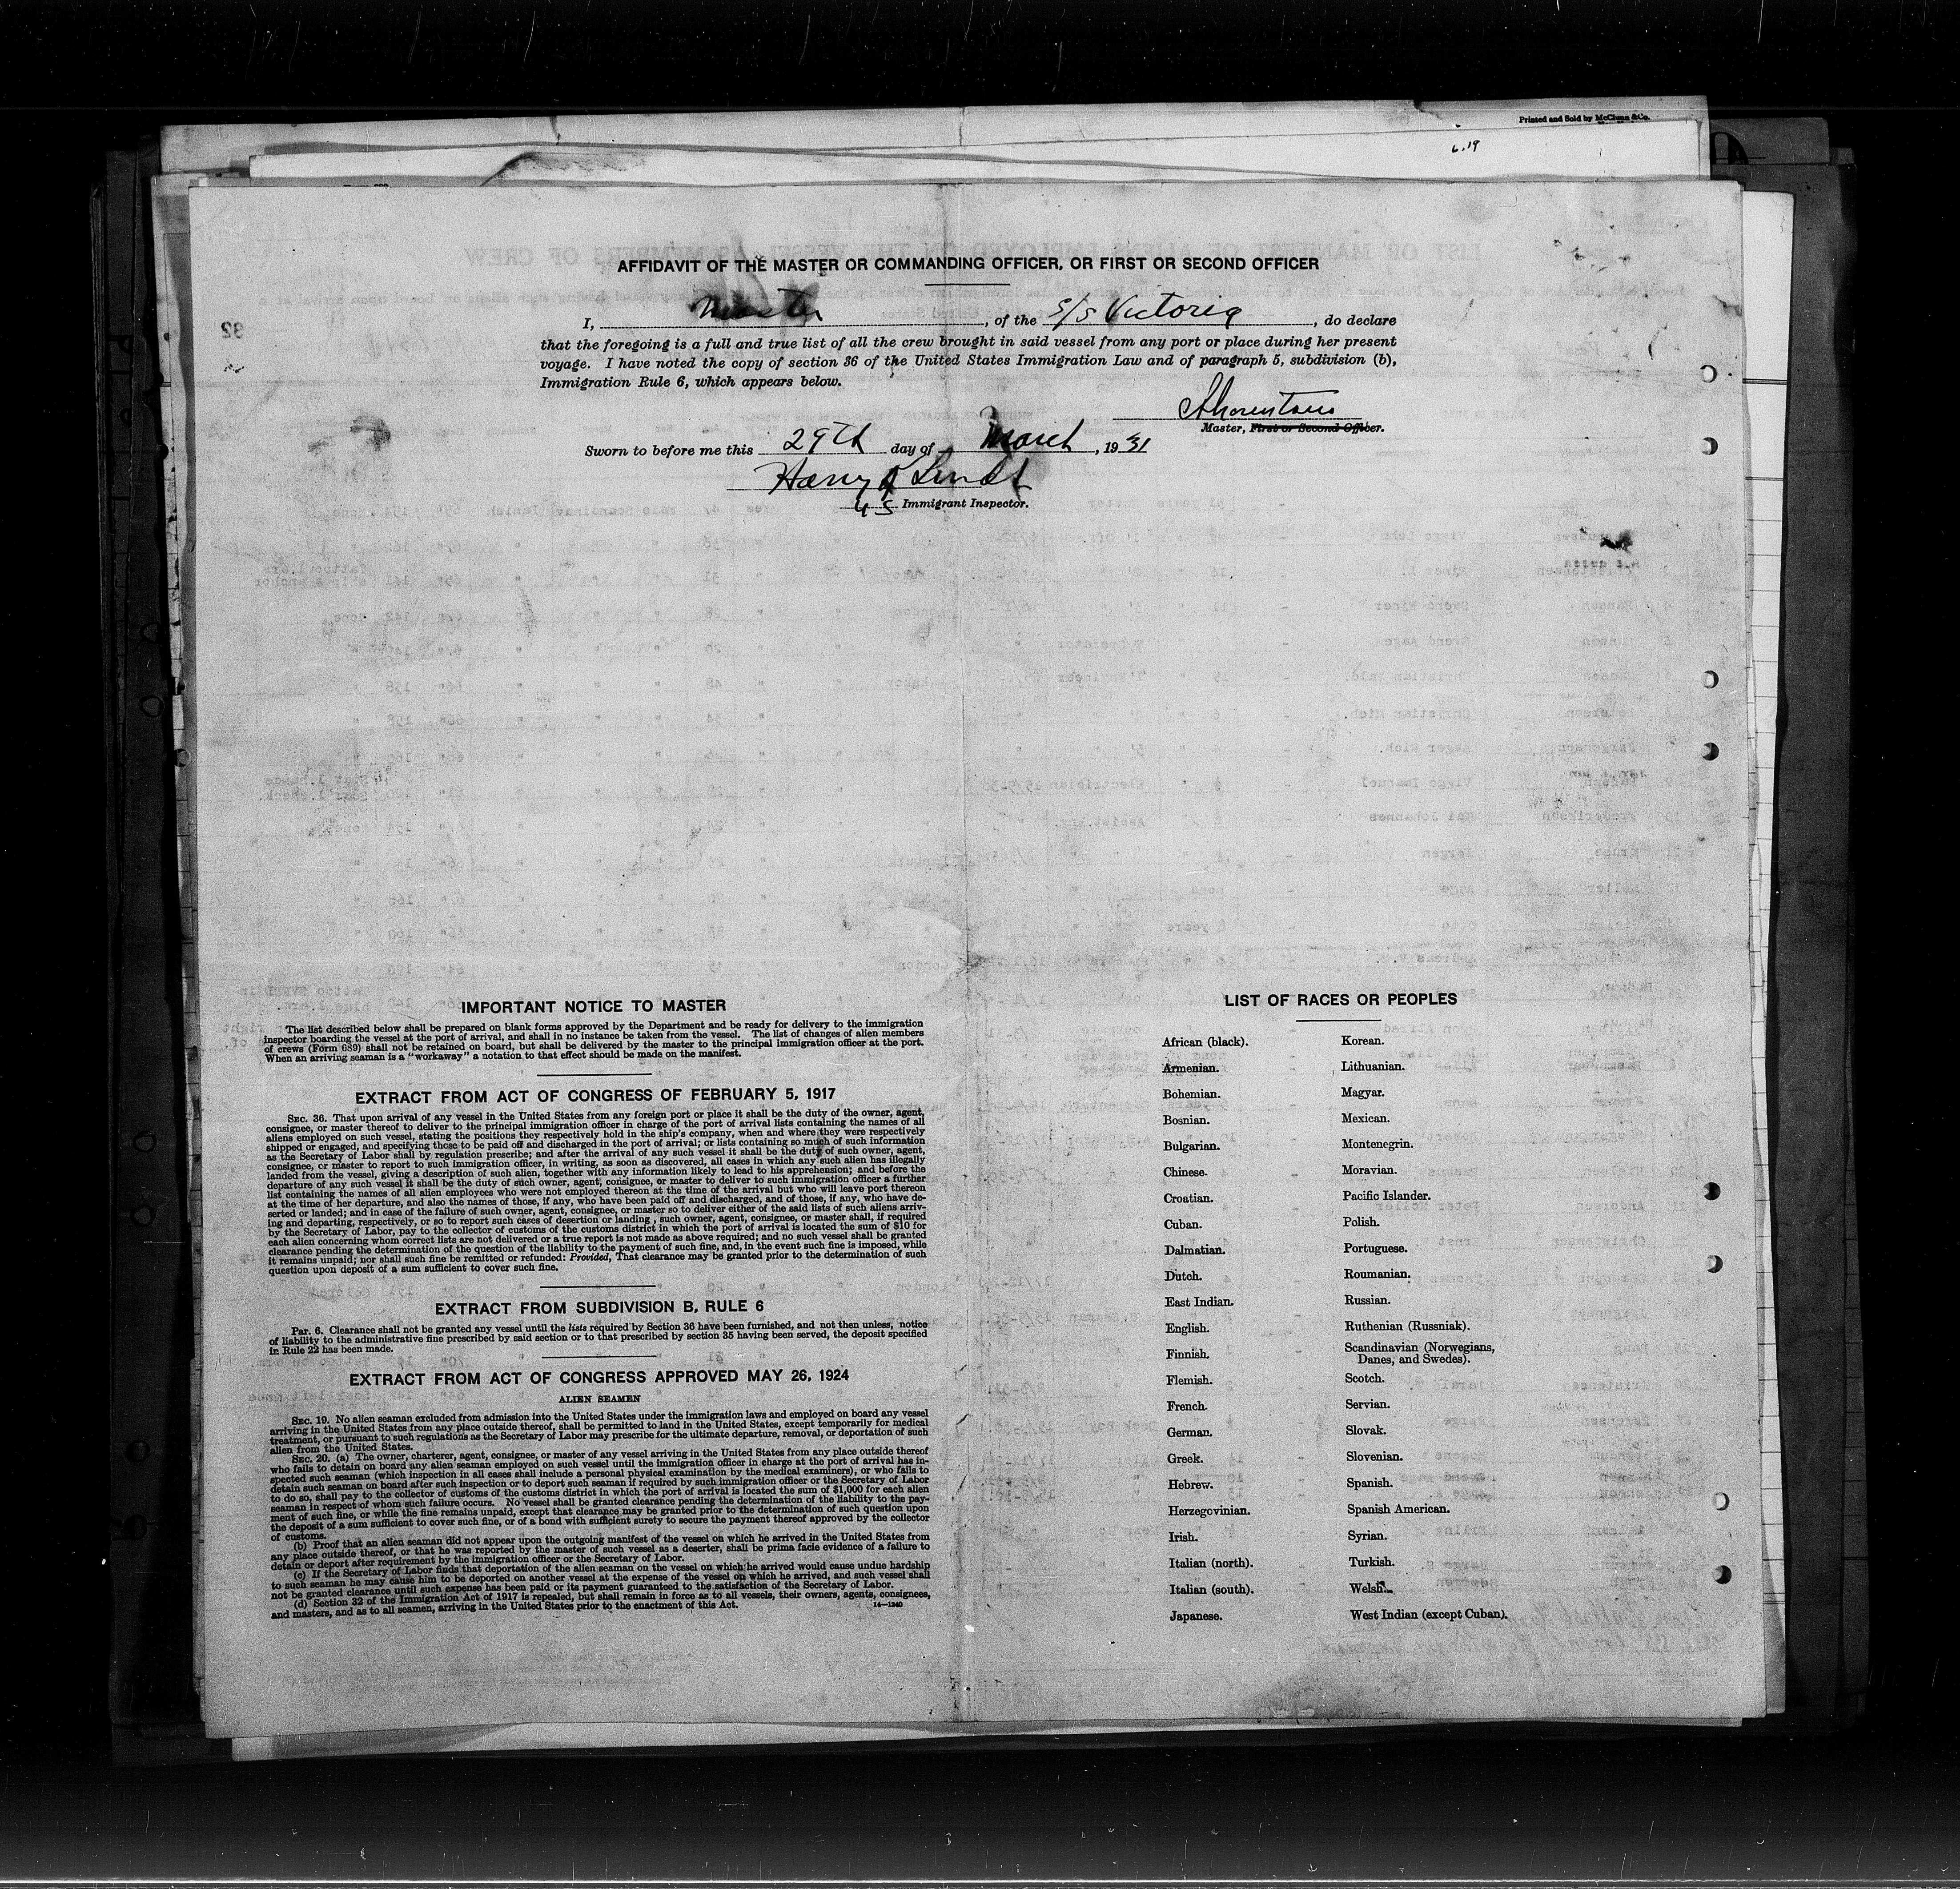 Printed and Sold by McClunn & Co.
6.19
AFFIDAVIT OF THE MASTER OR COMMANDING OFFICER, OR FIRST OR SECOND OFFICER
I, Master, of the S/S Victoria, do declare
that the foregoing is a full and true list of all the crew brought in said vessel from any port or place during her present
voyage. I have noted the copy of section 36 of the United States Immigration Law and of paragraph 5, subdivision (b),
Immigration Rule 6, which appears below.
Master, First or Second Officer.
Sworn to before me this 29th day of March, 1931
Harry
US Immigrant Inspector.
IMPORTANT NOTICE TO MASTER
The list described below shall be prepared on blank forms approved by the Department and be ready for delivery to the immigration
inspector boarding the vessel at the port of arrival, and shall in no instance be taken from the vessel. The list of changes of alien members
of crews (Form 689) shall not be retained on board, but shall be delivered by the master to the principal immigration officer at the port.
When an arriving seaman is a "workaway" a notation to that effect should be made on the manifest.
EXTRACT FROM ACT OF CONGRESS OF FEBRUARY 5, 1917
SEC. 36. That upon arrival of any vessel in the United States from any foreign port or place it shall be the duty of the owner, agent,
consignee, or master thereof to deliver to the principal immigration officer in charge of the port of arrival lists containing the names of all
aliens employed on such vessel, stating the positions they respectively hold in the ship's company, when and where they were respectively
shipped or engaged, and specifying those to be paid off and discharged in the port of arrival; or lists containing so much of such information
as the Secretary of Labor shall by regulation prescribe; and after the arrival of any such vessel it shall be the duty of such owner, agent,
consignee, or master to report to such immigration officer, in writing, as soon as discovered, all cases in which any such alien has illegally
landed from the vessel, giving a description of such alien, together with any information likely to lead to his apprehension; and before the
departure of any such vessel it shall be the duty of such owner, agent, consignee, or master to deliver to such immigration officer a further
list containing the names of all alien employees who were not employed thereon at the time of the arrival but who will leave port thereon
at the time of her departure, and also the names of those, if any, who have been paid off and discharged, and of those, if any, who have de-
serted or landed; and in case of the failure of such owner, agent, consignee, or master so to deliver either of the said lists of such aliens arriv-
ing and departing, respectively, or so to report such cases of desertion or landing, such owner, agent, consignee, or master shall, if required
by the Secretary of Labor, pay to the collector of customs of the customs district in which the port of arrival is located the sum of $10 for
each alien concerning whom correct lists are not delivered or a true report is not made as above required; and no such vessel shall be granted
clearance pending the determination of the question of the liability to the payment of such fine, and, in the event such fine is imposed, while
it remains unpaid; nor shall such fine be remitted or refunded: Provided, That clearance may be granted prior to the determination of such
question upon deposit of a sum sufficient to cover such fine.
EXTRACT FROM SUBDIVISION B, RULE 6
Par. 6. Clearance shall not be granted any vessel until the lists required by Section 36 have been furnished, and not then unless, notice
of liability to the administrative fine prescribed by said section or to that prescribed by section 35 having been served, the deposit specified
in Rule 22 has been made.
EXTRACT FROM ACT OF CONGRESS APPROVED MAY 26, 1924
ALIEN SEAMEN
SEC. 19. No alien seaman excluded from admission into the United States under the immigration laws and employed on board any vessel
arriving in the United States from any place outside thereof, shall be permitted to land in the United States, except temporarily for medical
treatment, or pursuant to such regulations as the Secretary of Labor may prescribe for the ultimate departure, removal, or deportation of such
alien from the United States.
SEC. 20. (a) The owner, charterer, agent, consignee, or master of any vessel arriving in the United States from any place outside thereof
who fails to detain on board any alien seaman employed on such vessel until the immigration officer in charge at the port of arrival has in-
spected such seaman (which inspection in all cases shall include a personal physical examination by the medical examiners), or who fails to
detain such seaman on board after such inspection or to deport such seaman if required by such immigration officer or the Secretary of Labor
to do so, shall pay to the collector of customs of the customs district in which the port of arrival is located the sum of $1,000 for each alien
seaman in respect of whom such failure occurs. No vessel shall be granted clearance pending the determination of the liability to the pay-
ment of such fine, or while the fine remains unpaid, except that clearance may be granted prior to the determination of such question upon
the deposit of a sum sufficient to cover such fine, or of a bond with sufficient surety to secure the payment thereof approved by the collector
of customs.
(b) Proof that an alien seaman did not appear upon the outgoing manifest of the vessel on which he arrived in the United States from
any place outside thereof, or that he was reported by the master of such vessel as a deserter, shall be prima facie evidence of a failure to
detain or deport after requirement by the immigration officer or the Secretary of Labor.
(c) If the Secretary of Labor finds that deportation of the alien seaman on the vessel on which he arrived would cause undue hardship
to such seaman he may cause him to be deported on another vessel at the expense of the vessel on which he arrived, and such vessel shall
not be granted clearance until such expense has been paid or its payment guaranteed to the satisfaction of the Secretary of Labor.
(d) Section 32 of the Immigration Act of 1917 is repealed, but shall remain in force as to all vessels, their owners, agents, consignees,
and masters, and as to all seamen, arriving in the United States prior to the enactment of this Act.
14—1240
LIST OF RACES OR PEOPLES
African (black).
Armenian.
Bohemian.
Bosnian.
Bulgarian.
Chinese.
Croatian.
Cuban.
Dalmatian.
Dutch.
East Indian.
English.
Finnish.
Flemish.
French.
German.
Greek.
Hebrew.
Herzegovinian.
Irish.
Italian (north).
Italian (south).
Japanese.
Korean.
Lithuanian.
Magyar.
Mexican.
Montenegrin.
Moravian.
Pacific Islander.
Polish.
Portuguese.
Roumanian.
Russian.
Ruthenian (Russniak).
Scandinavian (Norwegians,
Danes, and Swedes).
Scotch.
Servian.
Slovak.
Slovenian.
Spanish.
Spanish American.
Syrian.
Turkish.
Welsh.
West Indian (except Cuban).